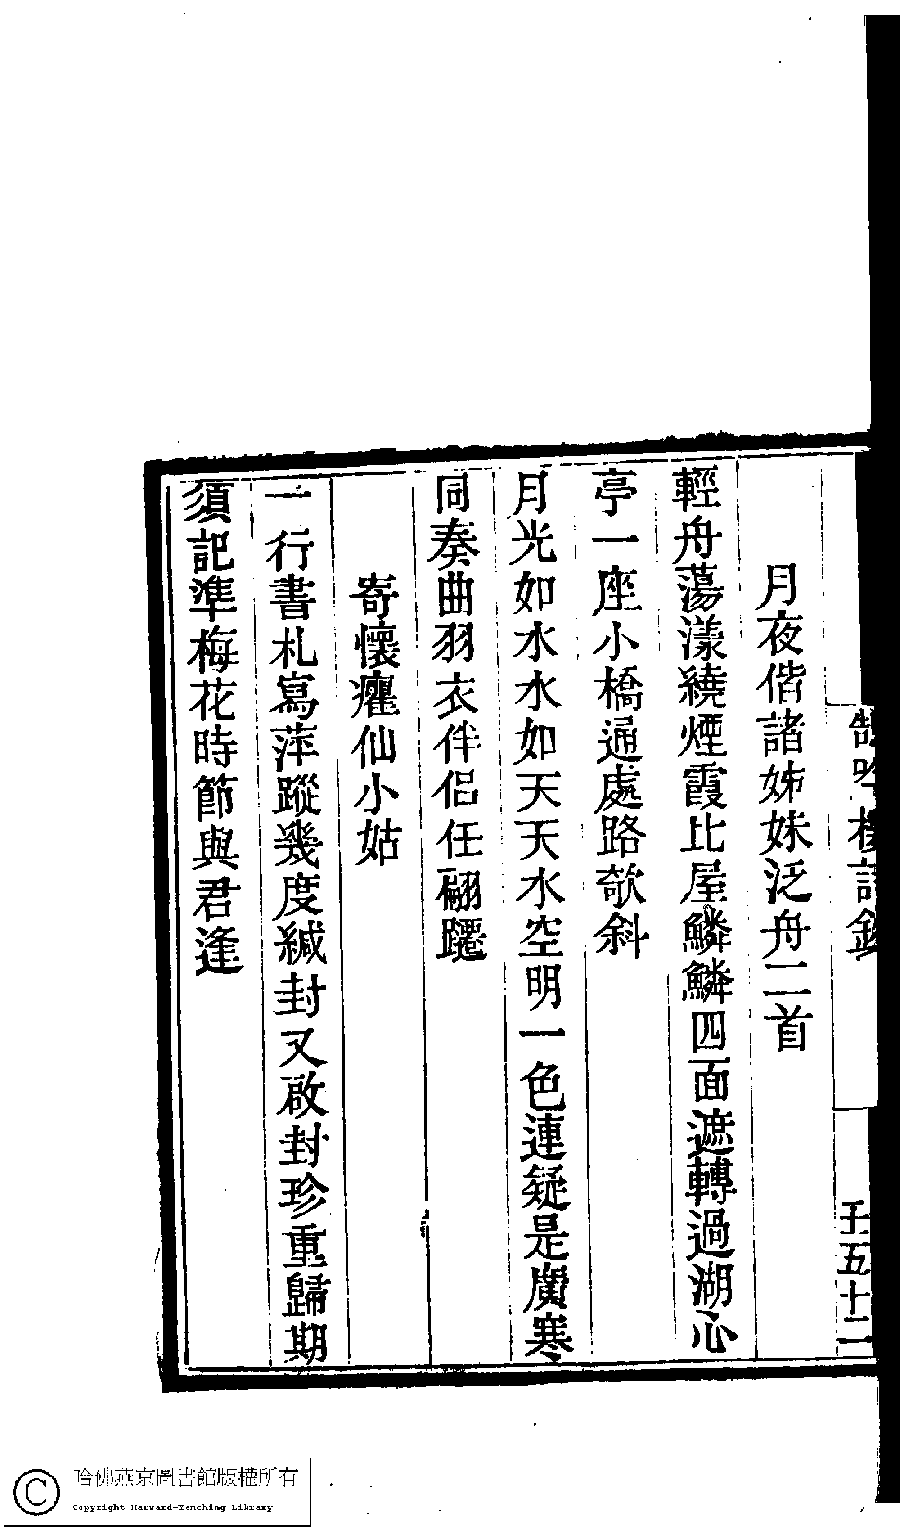 鵠吟樓詩鈔
壬五十二
月夜偕諸姊妹泛舟二首
輕舟蕩漾繞煙霞比屋鱗鱗四面遮轉過湖心
亭一座小橋通處路欹斜
月光如水水如天天水空明一色連疑是廣寒
同奏曲羽衣伴侶任翩躚
寄懷癯仙小姑
一行書札寫萍蹤幾度緘封又啟封珍重歸期
須記準梅花時節與君逢
© 哈佛燕京圖書館版權所有
Copyright Harvard-Yenching Library